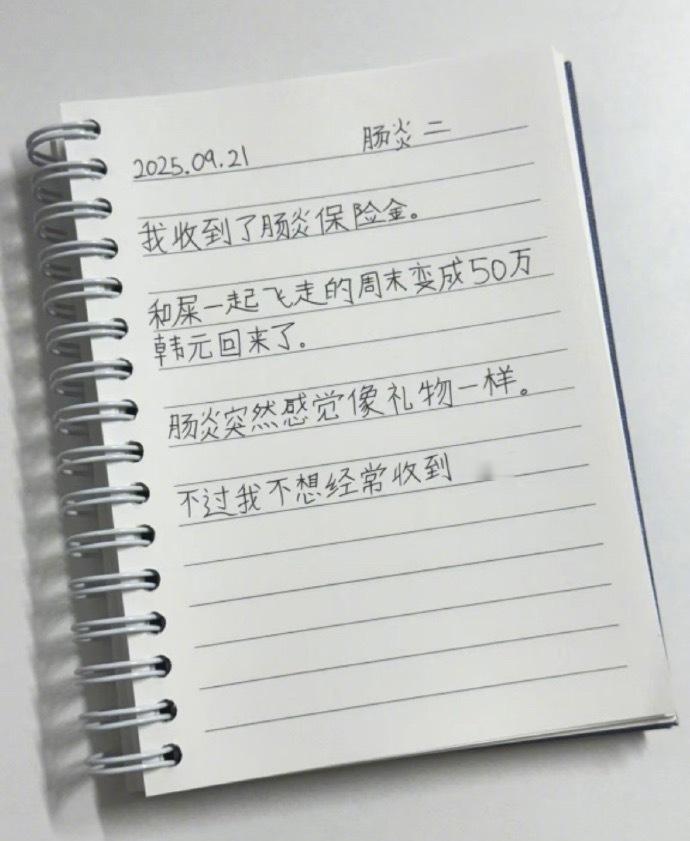 2025.09.21 肠炎 二
我收到了肠炎保险金。
和屎一起飞走的周末变成50万
韩元回来了。
肠炎突然感觉像礼物一样。
不过我不想经常收到